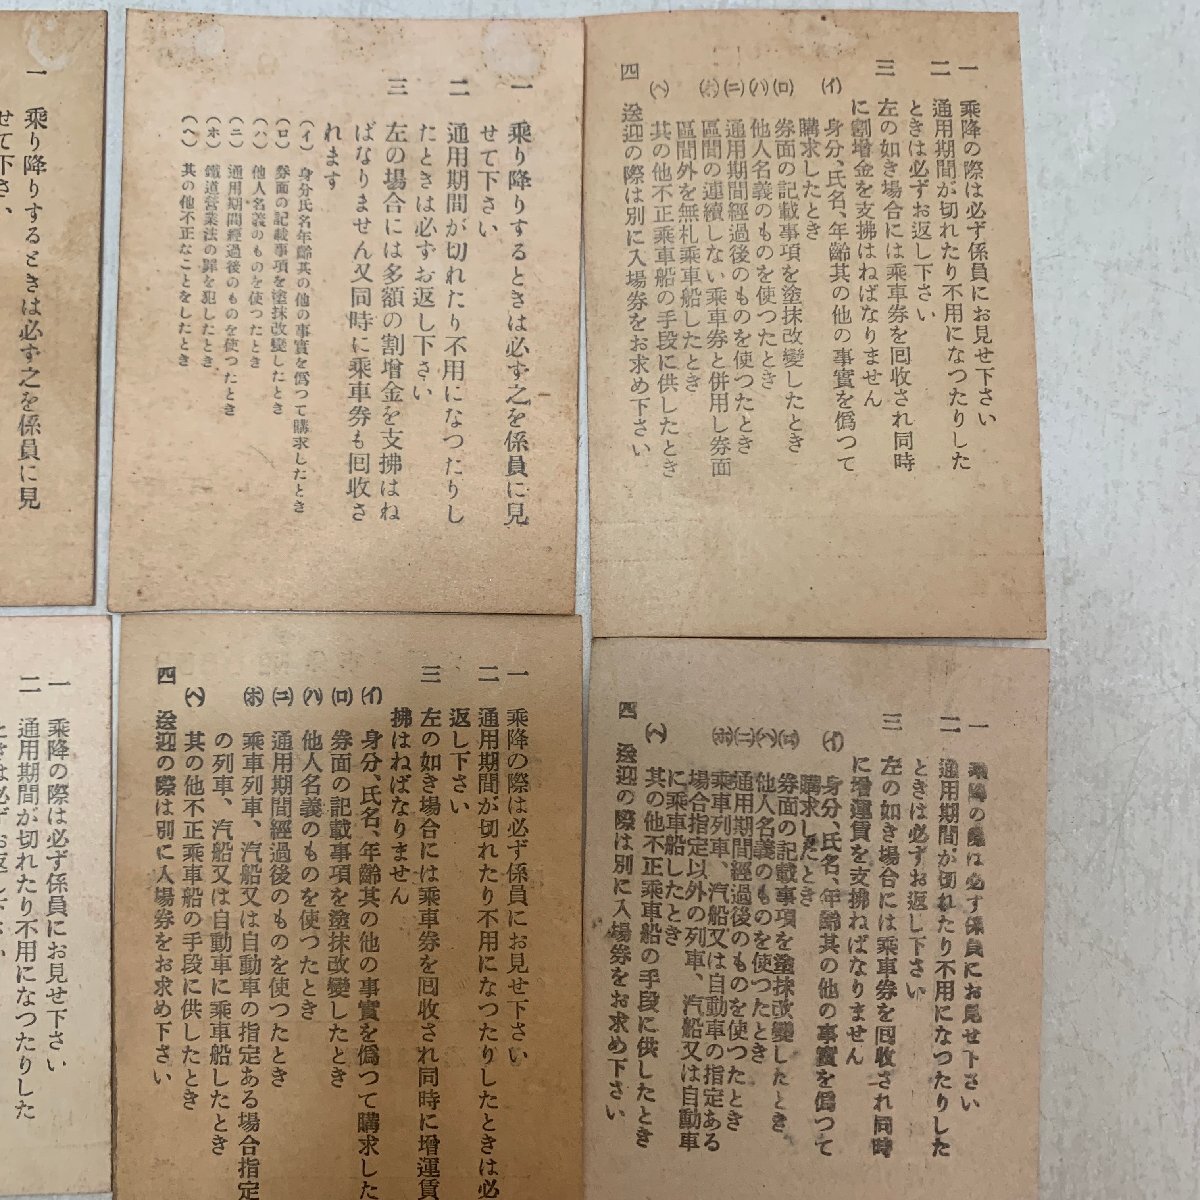 一 乗り降りするときは必ず之を係員に見
せて下さい
一 乗り降りするときは必ず之を係員に見
せて下さい
二 通用期間が切れたり不用になつたりし
たときは必ずお返し下さい
三 左の場合には多額の割増金を支拂はね
ばなりません又同時に乗車券も囘收さ
れます
(イ) 身分氏名年齡其の他の事實を僞つて購求したとき
(ロ) 券面の記載事項を塗抹改變したとき
(ハ) 他人名義のものを使つたとき
(ニ) 通用期間經過後のものを使つたとき
(ホ) 鐵道營業法の罪を犯したとき
(ヘ) 其の他不正なことをしたとき
一 乗降の際は必ず係員にお見せ下さい
二 通用期間が切れたり不用になつたりした
ときは必ずお返し下さい
三 左の如き場合には乗車券を回收され同時
に割增金を支拂はねばなりません
(イ) 身分、氏名、年齡其の他の事實を僞つて
購求したとき
(ロ) 券面の記載事項を塗抹改變したとき
(ハ) 他人名義のものを使つたとき
(ニ) 通用期間經過後のものを使つたとき
(ホ) 區間の連續しない乗車券と併用し券面
區間外を無札乗車船したとき
(ヘ) 其の他不正乗車船の手段に供したとき
四 送迎の際は別に入場券をお求め下さい
一 乗降の際は必ず係員にお見せ下さい
二 通用期間が切れたり不用になつたりした
ときは必ずお返し下さい
一 乗降の際は必ず係員にお見せ下さい
二 通用期間が切れたり不用になつたりしたときは必
返し下さい
三 左の如き場合には乗車券を回收され同時に增運賃
拂はねばなりません
(イ) 身分、氏名、年齡其の他の事實を僞つて購求した
(ロ) 券面の記載事項を塗抹改變したとき
(ハ) 他人名義のものを使つたとき
(ニ) 通用期間經過後のものを使つたとき
(ホ) 乗車列車、汽船又は自動車の指定ある場合指定
の列車、汽船又は自動車に乗車船したとき
(ヘ) 其の他不正乗車船の手段に供したとき
四 送迎の際は別に入場券をお求め下さい
一 乗降の際は必ず係員にお見せ下さい
二 通用期間が切れたり不用になつたりした
ときは必ずお返し下さい
三 左の如き場合には乗車券を回收され同時
に增運賃を支拂ねばなりません
(イ) 身分、氏名、年齡其の他の事實を僞つて
購求したとき
(ロ) 券面の記載事項を塗抹改變したとき
(ハ) 他人名義のものを使つたとき
(ニ) 通用期間經過後のものを使つたとき
(ホ) 乗車列車、汽船又は自動車の指定ある
場合指定以外の列車、汽船又は自動車
に乗車船したとき
(ヘ) 其の他不正乗車船の手段に供したとき
四 送迎の際は別に入場券をお求め下さい